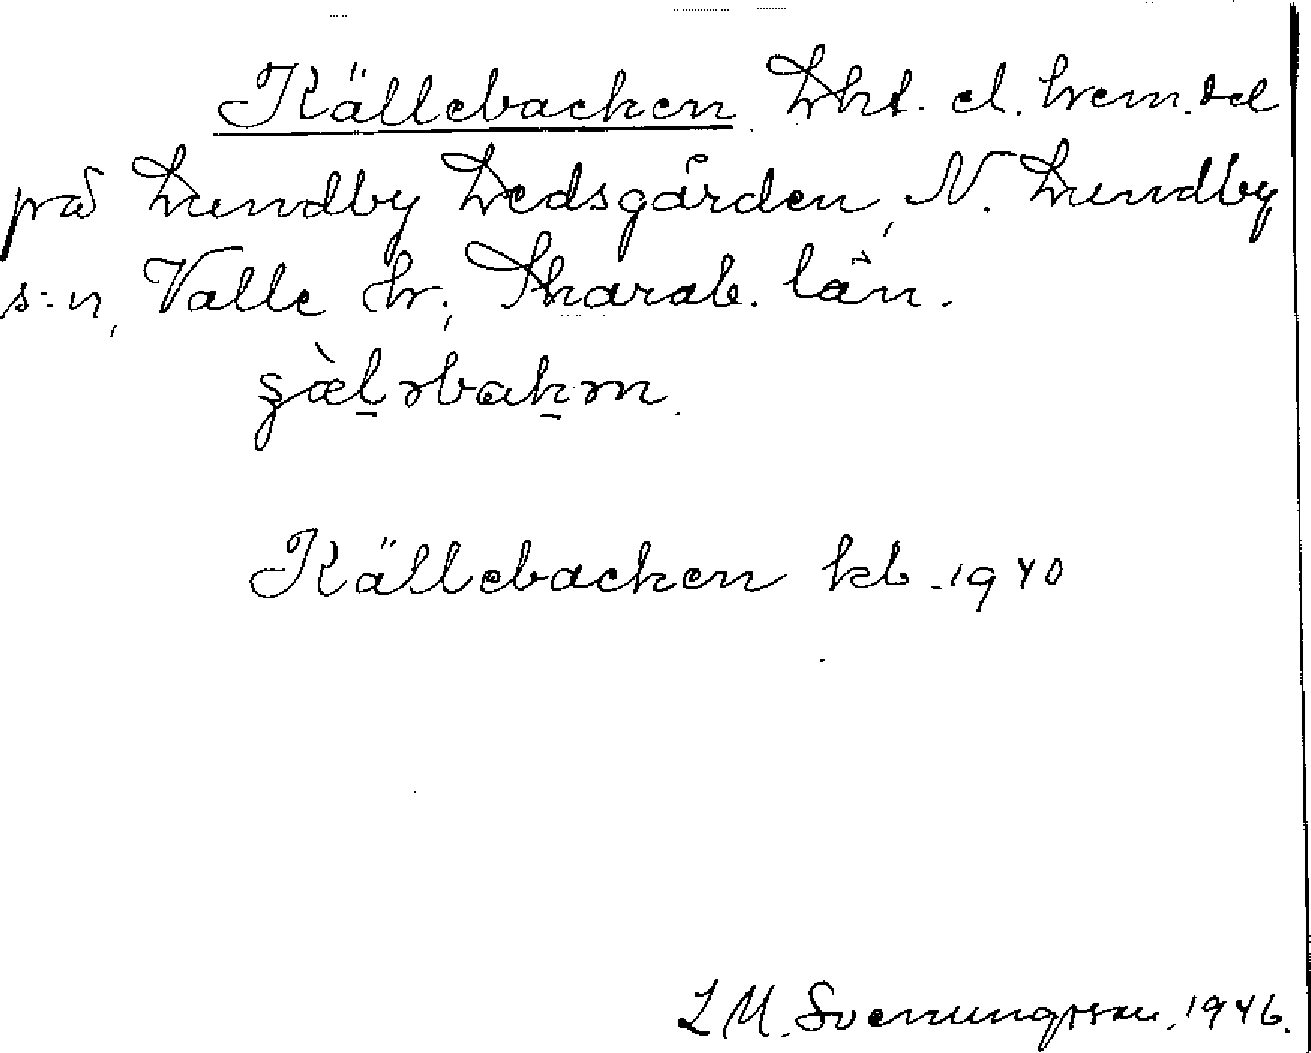 Källebacken Lht. el. hem.del
på Lundby Ledsgården, N. Lundby
s:n, Valle hr, Skarab. län.
Källebacken kb. 1940
L M. Svenungsson. 1946.